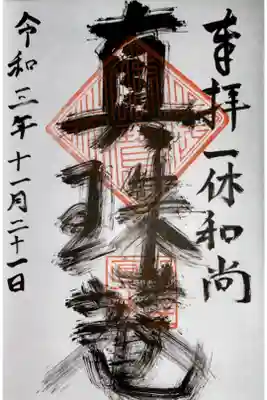 奉拝一休和尚
真珠菴
令和三年十一月二十一日